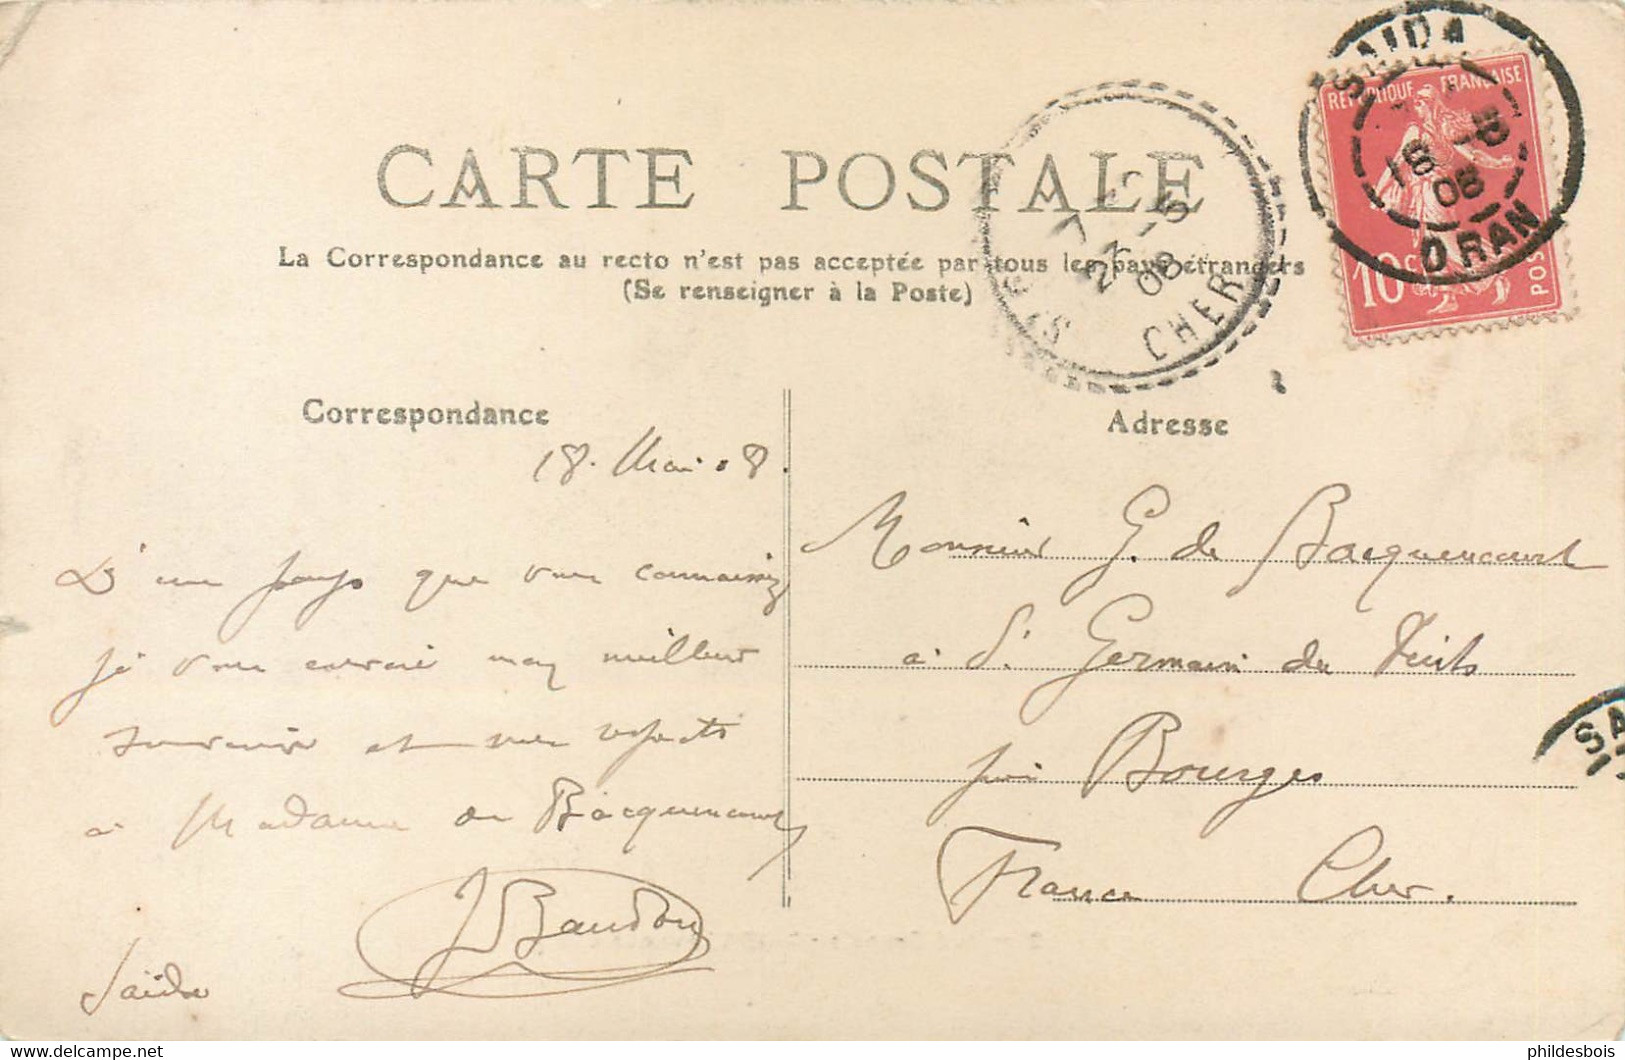 CARTE POSTALE
La Correspondance au recto n'est pas acceptée par tous les pays étrangers
(Se renseigner à la Poste)
SAIDA
18 -5
08
ORAN
REPUBLIQUE FRANÇAISE
10 c
POS
7
21 -5
08
CHER
Correspondance
18. Mai. 08.
D'un pays que vous connaissiez
je vous envoie mon meilleur
souvenir et mes respects
à Madame de Bacquencourt
J Baudou
Saïda
Adresse
Monsieur G. de Bacquencourt
à St Germain du Puits
près Bourges
France Cher.
SA
phildesbois